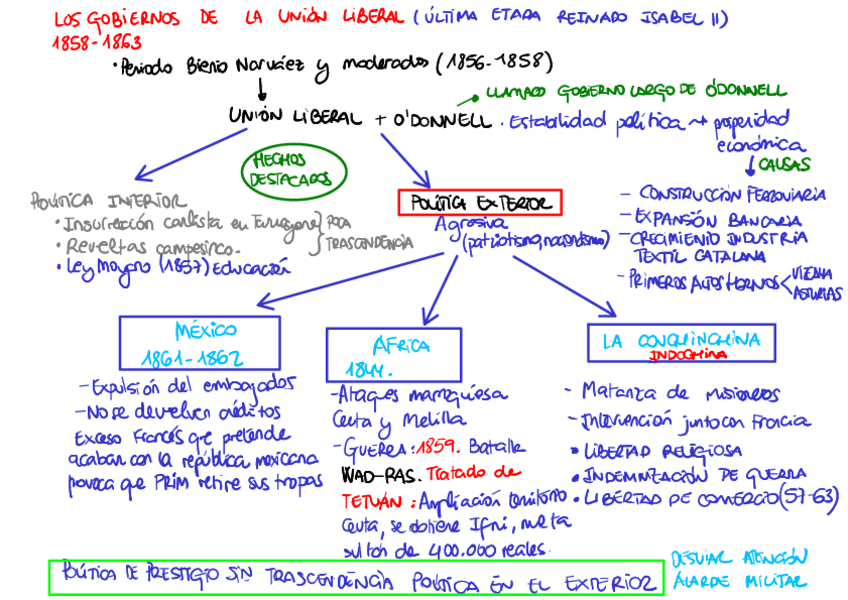 LOS GOBIERNOS DE LA UNIÓN LIBERAL (ÚLTIMA ETAPA REINADO ISABEL II)
1858-1863
• Periodo Bienio Narváez y moderados (1856-1858)
LLAMADO GOBIERNO LARGO DE O'DONNELL
UNIÓN LIBERAL + O'DONNELL • Estabilidad política → prosperidad
económica
CAUSAS
HECHOS
DESTACADOS
POLÍTICA INTERIOR
• Insurrección carlista en Tarragona } POCA
• Revueltas campesinas. } TRASCENDENCIA
• Ley Moyano (1857) Educación
POLÍTICA EXTERIOR
Agresiva
(patriotismo, nacionalismo)
- CONSTRUCCIÓN FERROVIARIA
- EXPANSIÓN BANCARIA
- CRECIMIENTO INDUSTRIA
TEXTIL CATALANA
- PRIMEROS ALTOS HORNOS < VIZCAYA
ASTURIAS
MÉXICO
1861-1862
- Expulsión del embajador
- No se devuelven créditos
Exceso Francés que pretende
acabar con la república mexicana
provoca que PRIM retire sus tropas
ÁFRICA
1844.
- Ataques marroquíes a
Ceuta y Melilla
- GUERRA: 1859. Batalla
WAD-RAS. Tratado de
TETUÁN: Ampliación territorio
Ceuta, se obtiene Ifni, multa
sultán de 400.000 reales.
LA CONCHINCHINA
INDOCHINA
- Matanza de misioneros
- Intervención junto con Francia
• LIBERTAD RELIGIOSA
• INDEMNIZACIÓN DE GUERRA
• LIBERTAD DE COMERCIO (57-63)
POLÍTICA DE PRESTIGIO SIN TRASCENDENCIA POLÍTICA EN EL EXTERIOR
DESVIAR ATENCIÓN
ALARDE MILITAR